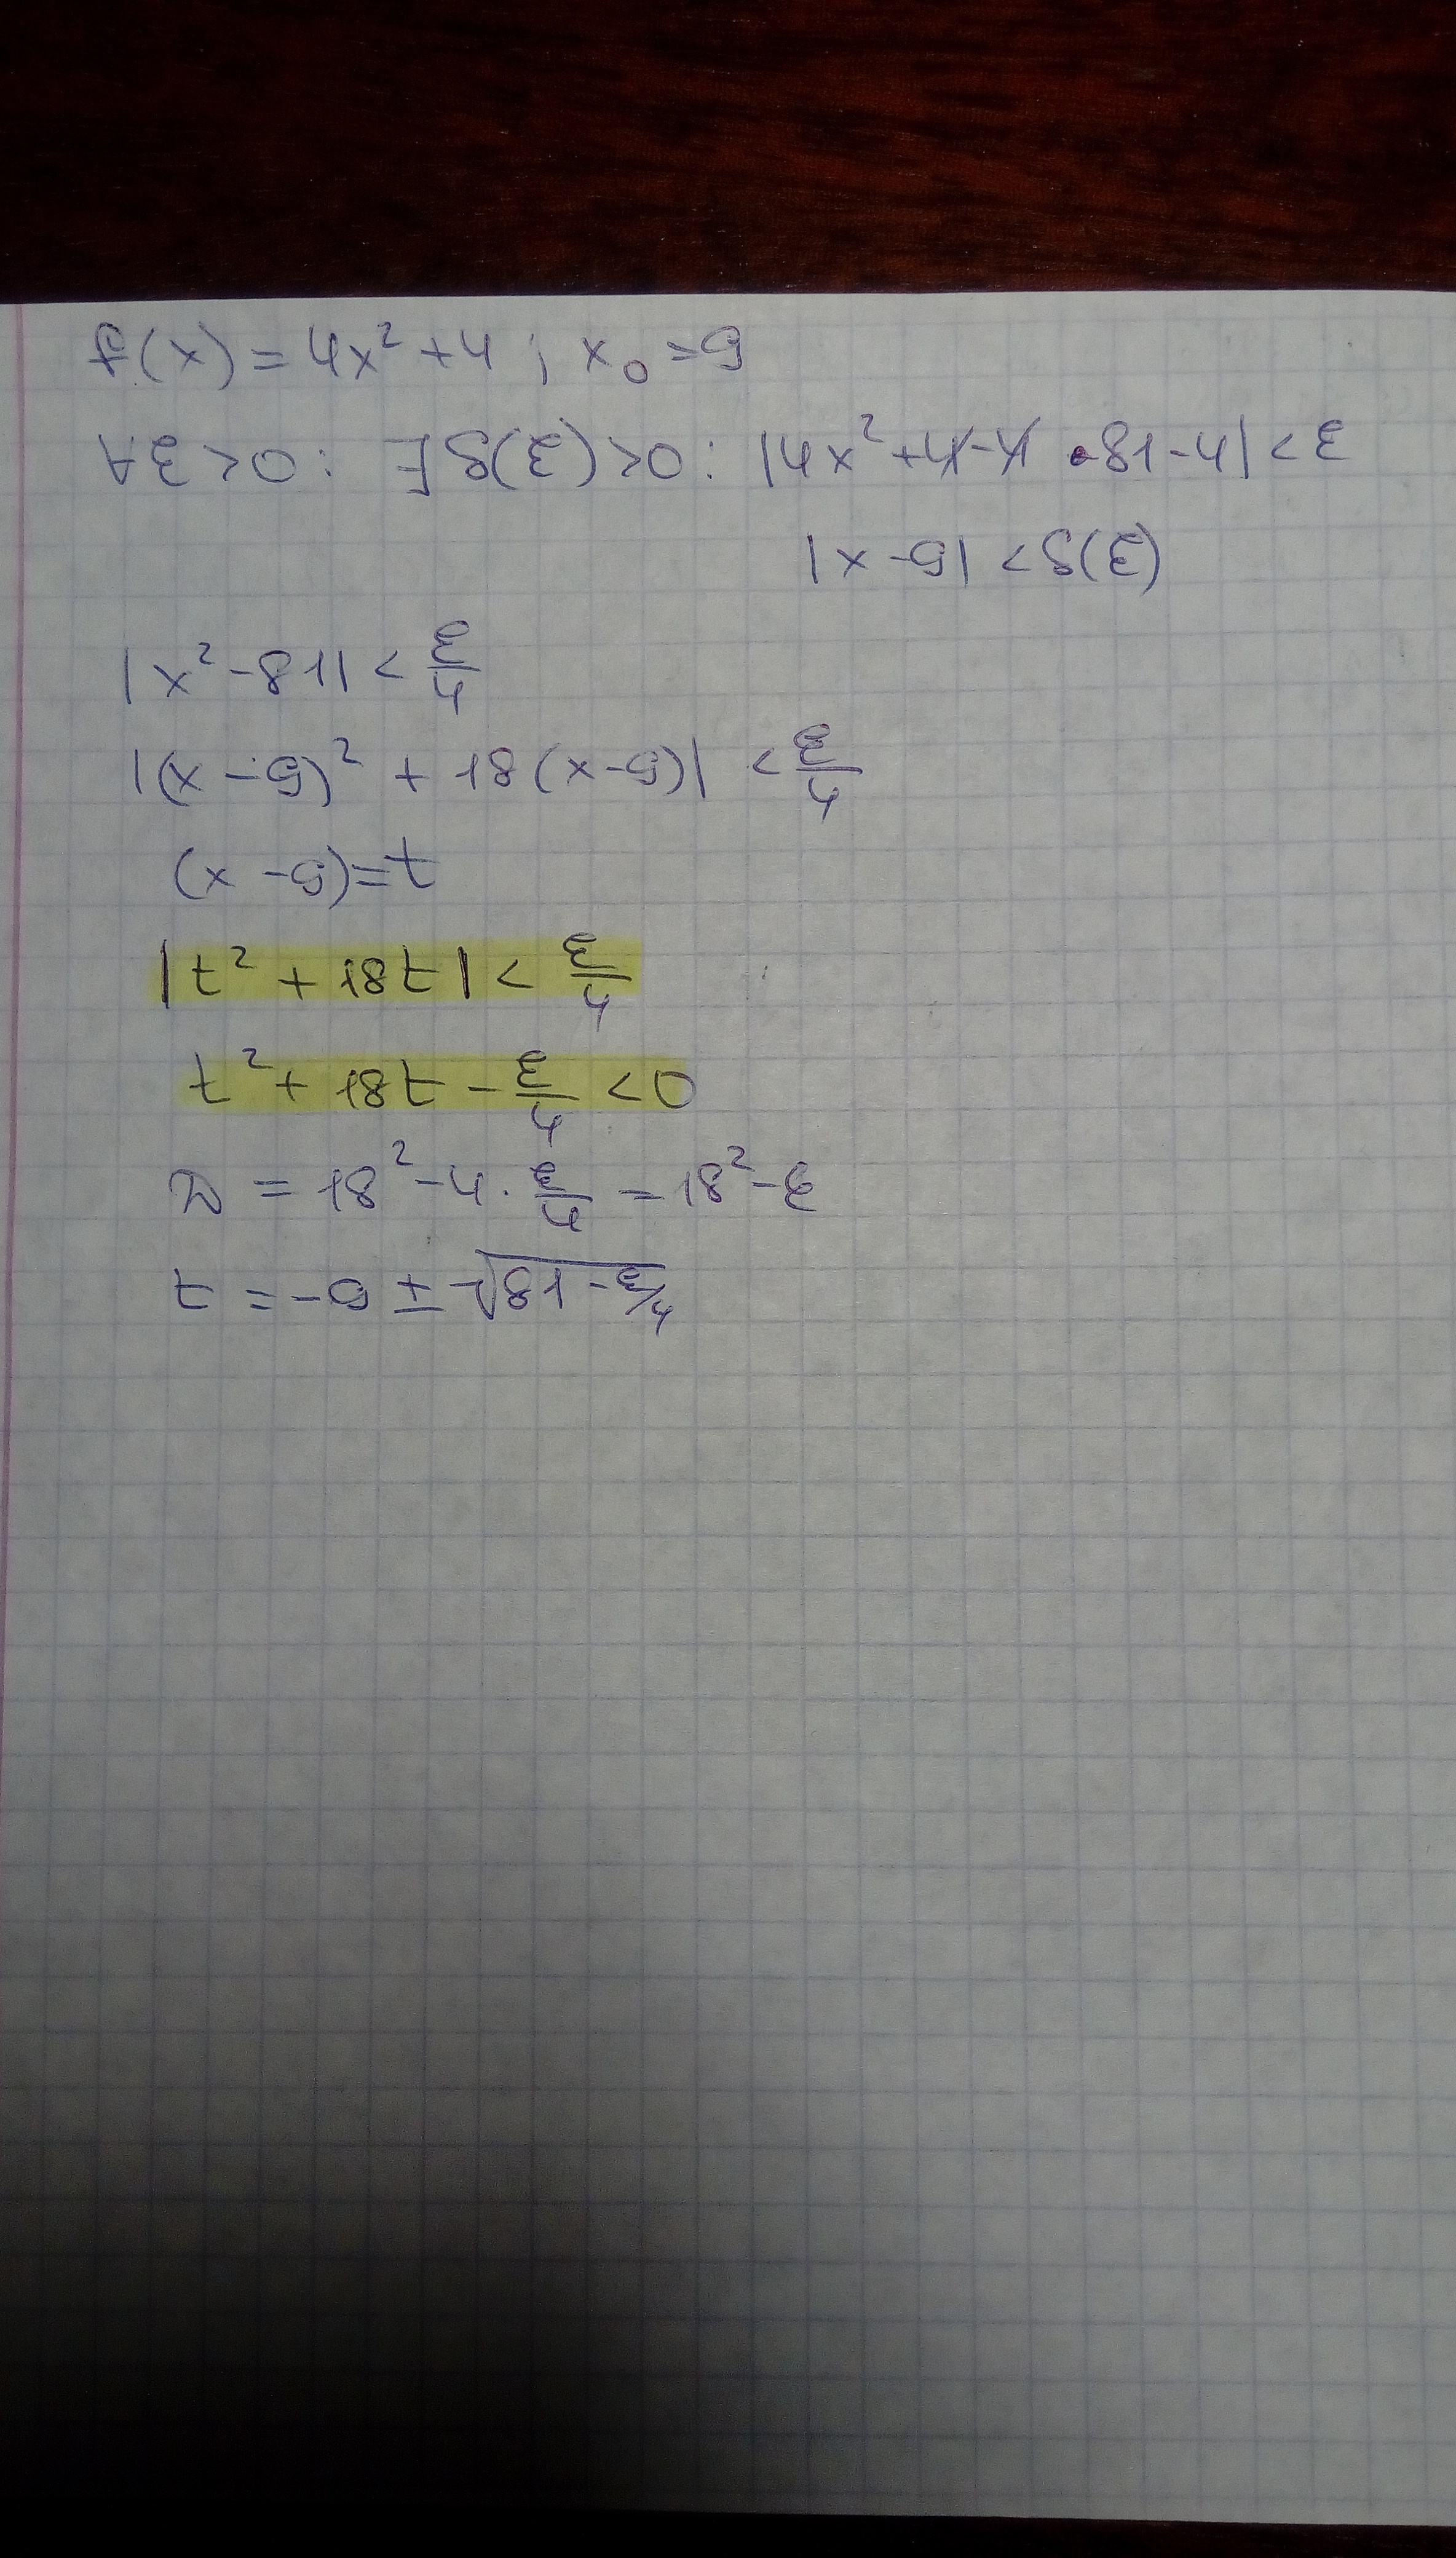 f(x) = 4x² + 4 ; x₀ = 9
∀ε > 0 : ∃δ(ε) > 0 : |4x² + 4 - 4 · 81 - 4| < ε
|x - 9| < δ(ε)
|x² - 81| < ε/4
|(x - 9)² + 18(x - 9)| < ε/4
(x - 9) = t
|t² + 18t| < ε/4
t² + 18t - ε/4 < 0
D = 18² - 4 · ε/4 = 18² - ε
t = -9 ± √(81 - ε/4)